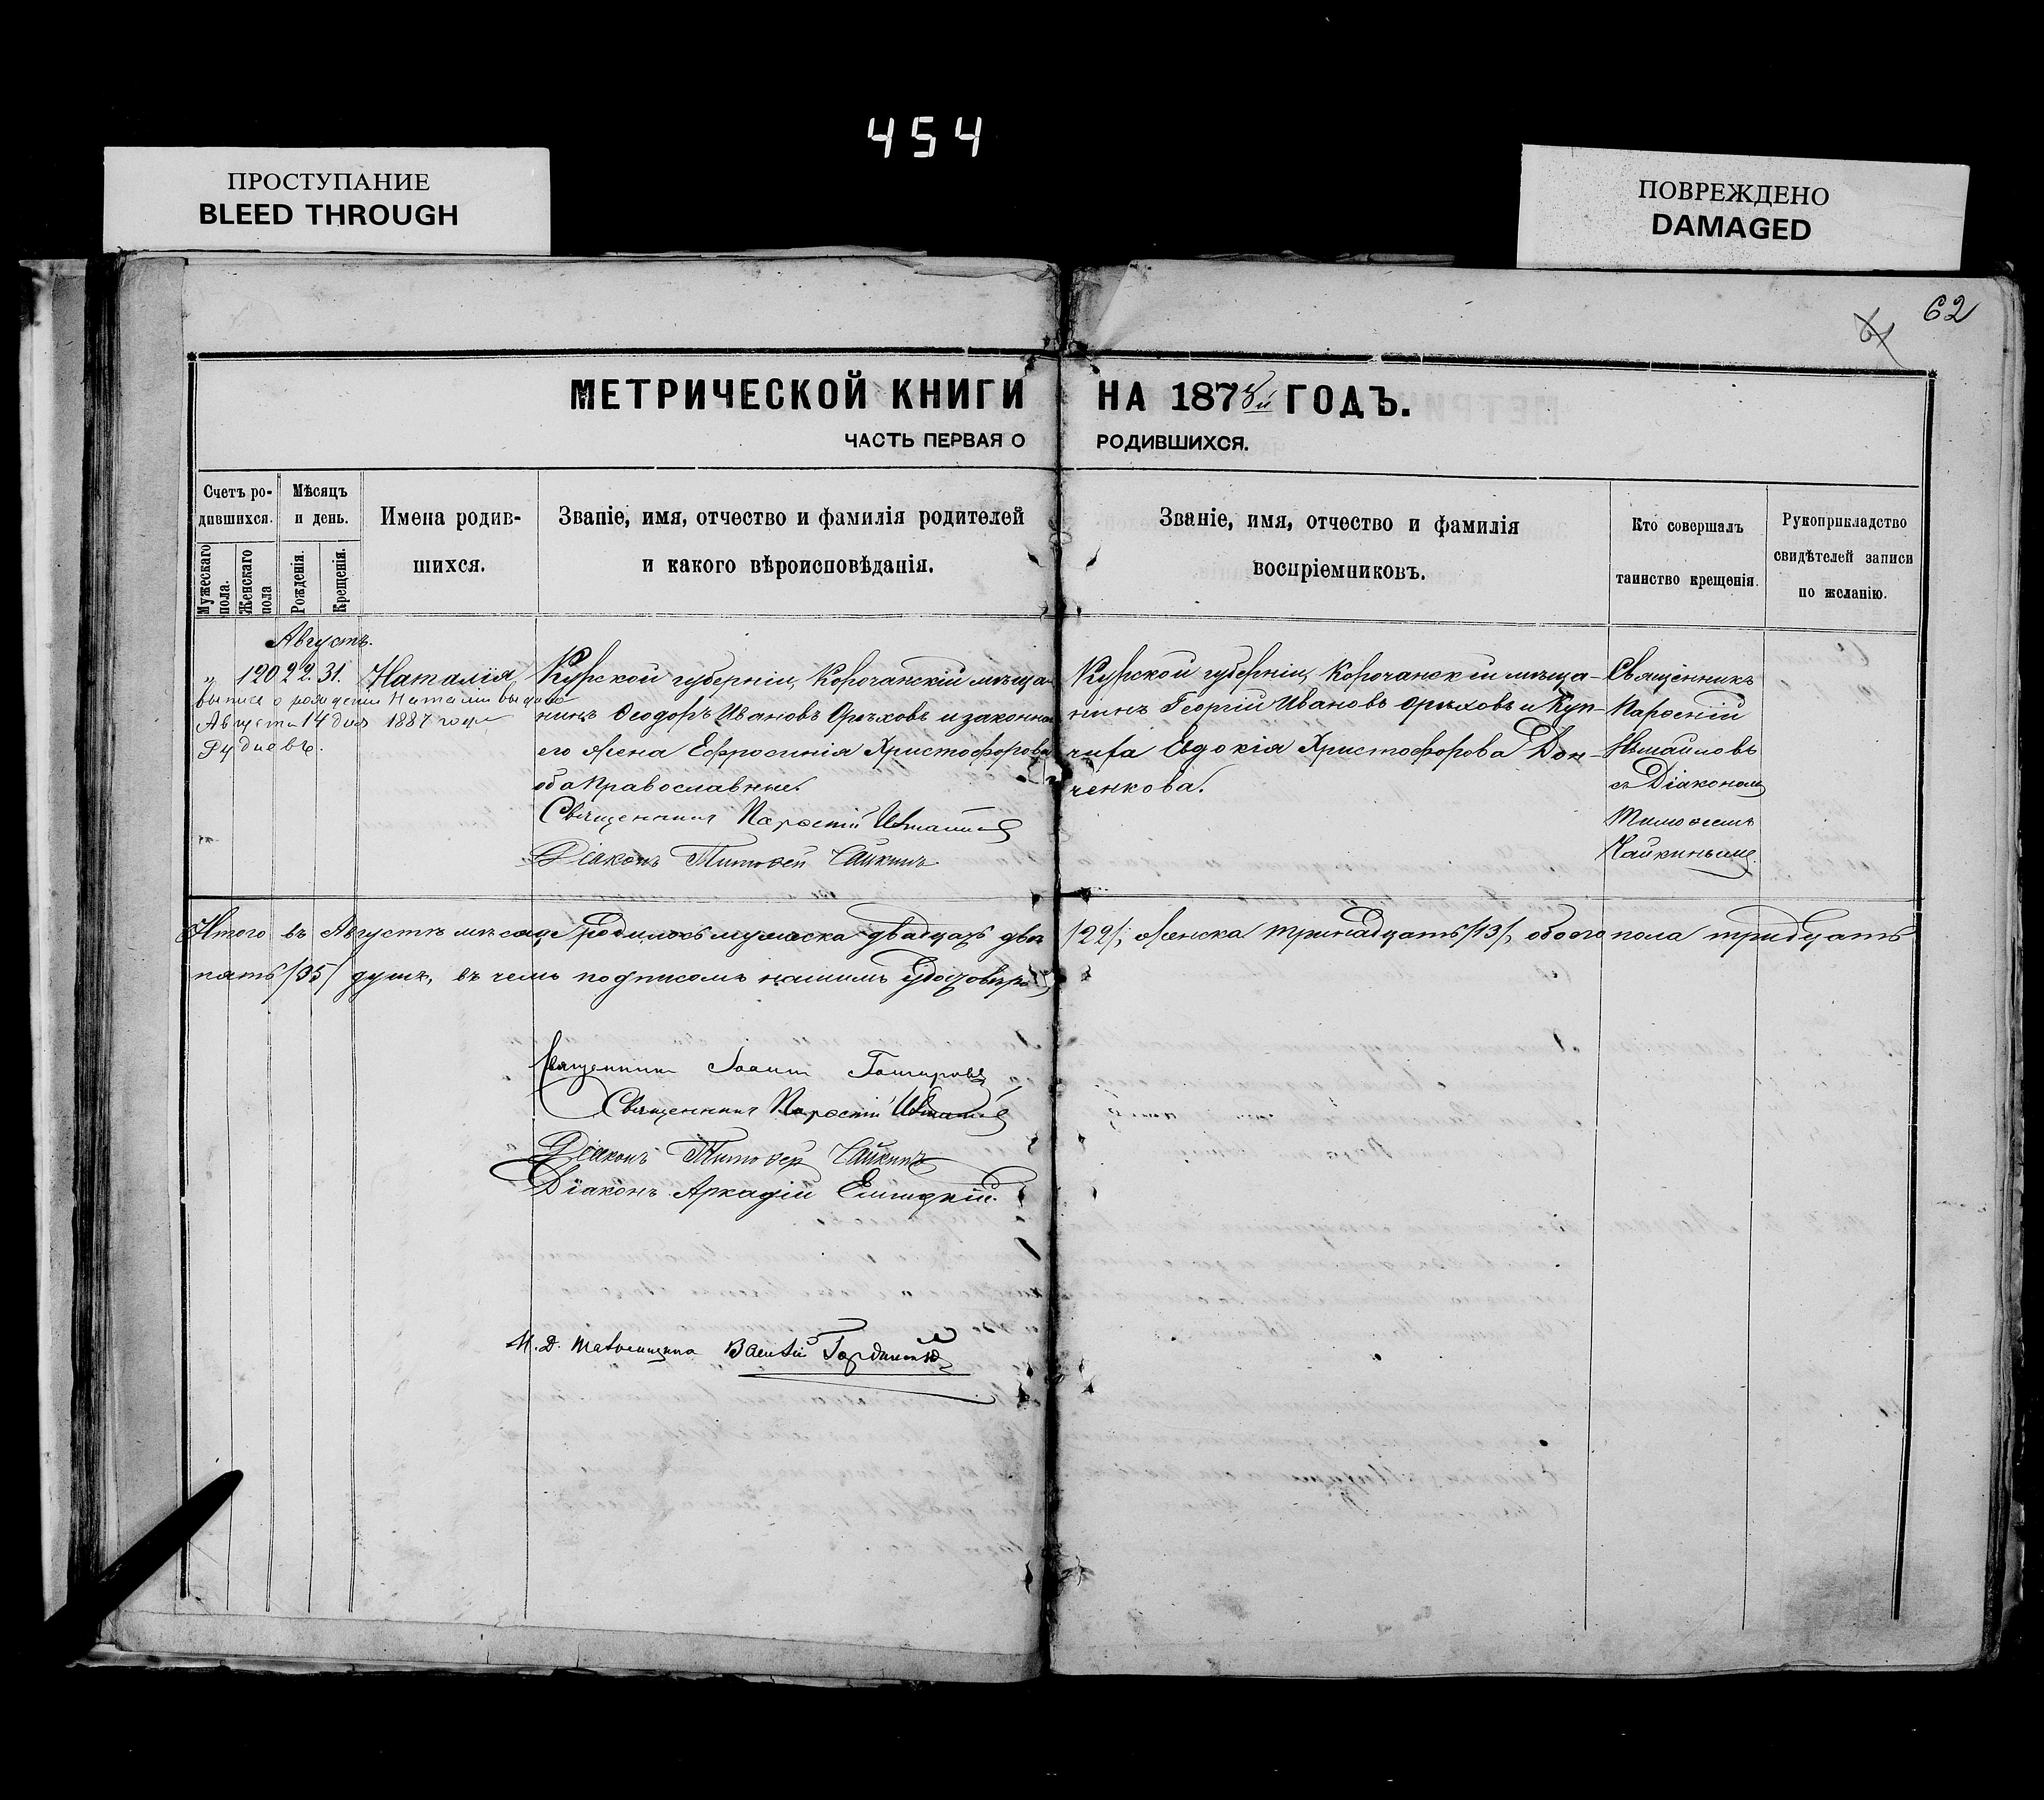 454
ПРОСТУПАНИЕ
BLEED THROUGH
ПОВРЕЖДЕНО
DAMAGED
62
61
МЕТРИЧЕСКОЙ КНИГИ НА 1878й ГОДЪ.
ЧАСТЬ ПЕРВАЯ О РОДИВШИХСЯ.
Счетъ ро-
дившихся.
Мужескаго пола.
Женскаго пола
Мѣсяцъ
и день.
Рожденія.
Крещенія.
Имена родив-
шихся.
Званіе, имя, отчество и фамилія родителей
и какого вѣроисповѣданія.
Званіе, имя, отчество и фамилія
воспріемниковъ.
Кто совершалъ
таинство крещенія.
Рукоприкладство
свидѣтелей записи
по желанію.
Августъ.
„ 120 22. 31. Наталія,
выпись о рождении Наталіи выдана
Августа 14 дня 1887 года
Рудневъ.
Курской губерніи, Корочанскій мѣща-
нинъ Ѳеодоръ Ивановъ Орѣховъ и законная
его жена Ефросинія Христофорова
оба Православные.
Священникъ
Діаконъ Тимоѳей Чайкинъ
Курской губерніи, Корочанскій мѣща-
нинъ Георгій Ивановъ Орѣховъ и Куп-
чиха Евдокія Христофорова Дон-
ченкова.
Священникъ
Измаиловъ
съ Діакономъ
Тимоѳеемъ
Чайкинымъ.
Итого въ Августѣ мѣсяцѣ родилось мужеска двадцать два /22/, женска тринадцать /13/, обоего пола тридцать
пять /35/ душъ, въ чемъ подписомъ нашимъ
Священникъ Іоаннъ
Священникъ
Діаконъ Тимоѳей Чайкинъ
Діаконъ Аркадій
И. Д. Василій